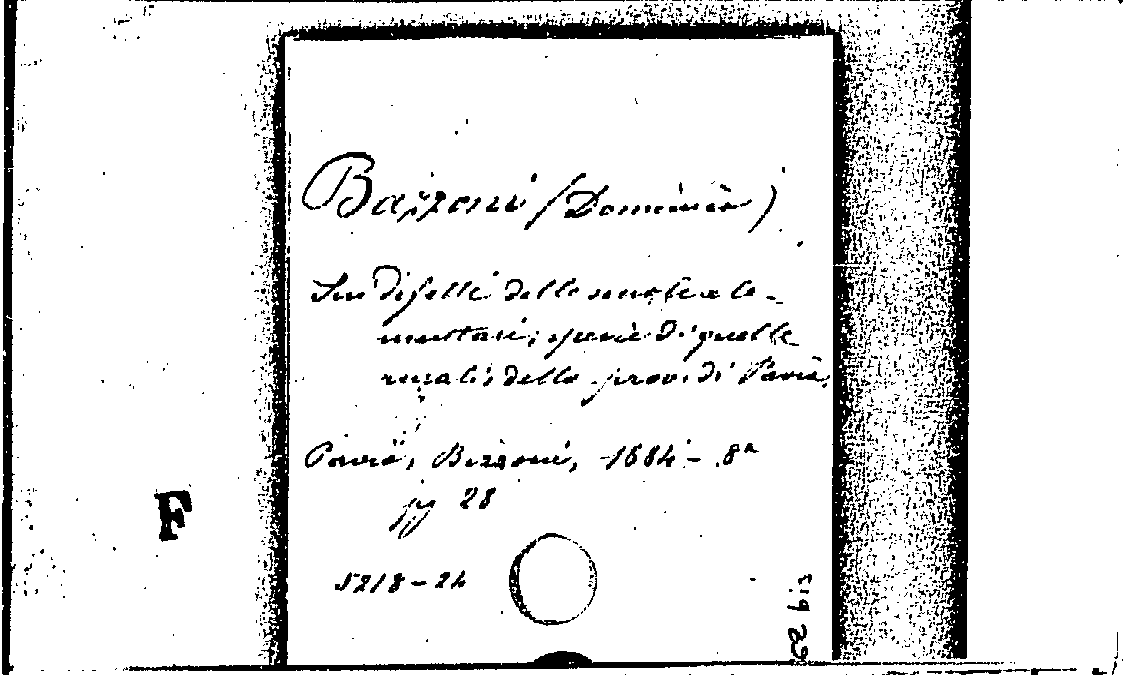 Bazzoni (Domenico)
Sui difetti delle scuole ele-
mentari, specie di quelle
rurali, della prov. di Pavia.
Pavia, Bizzoni, 1884 - 8°
pp 28
5218-24
F